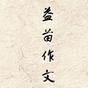 益苗作文